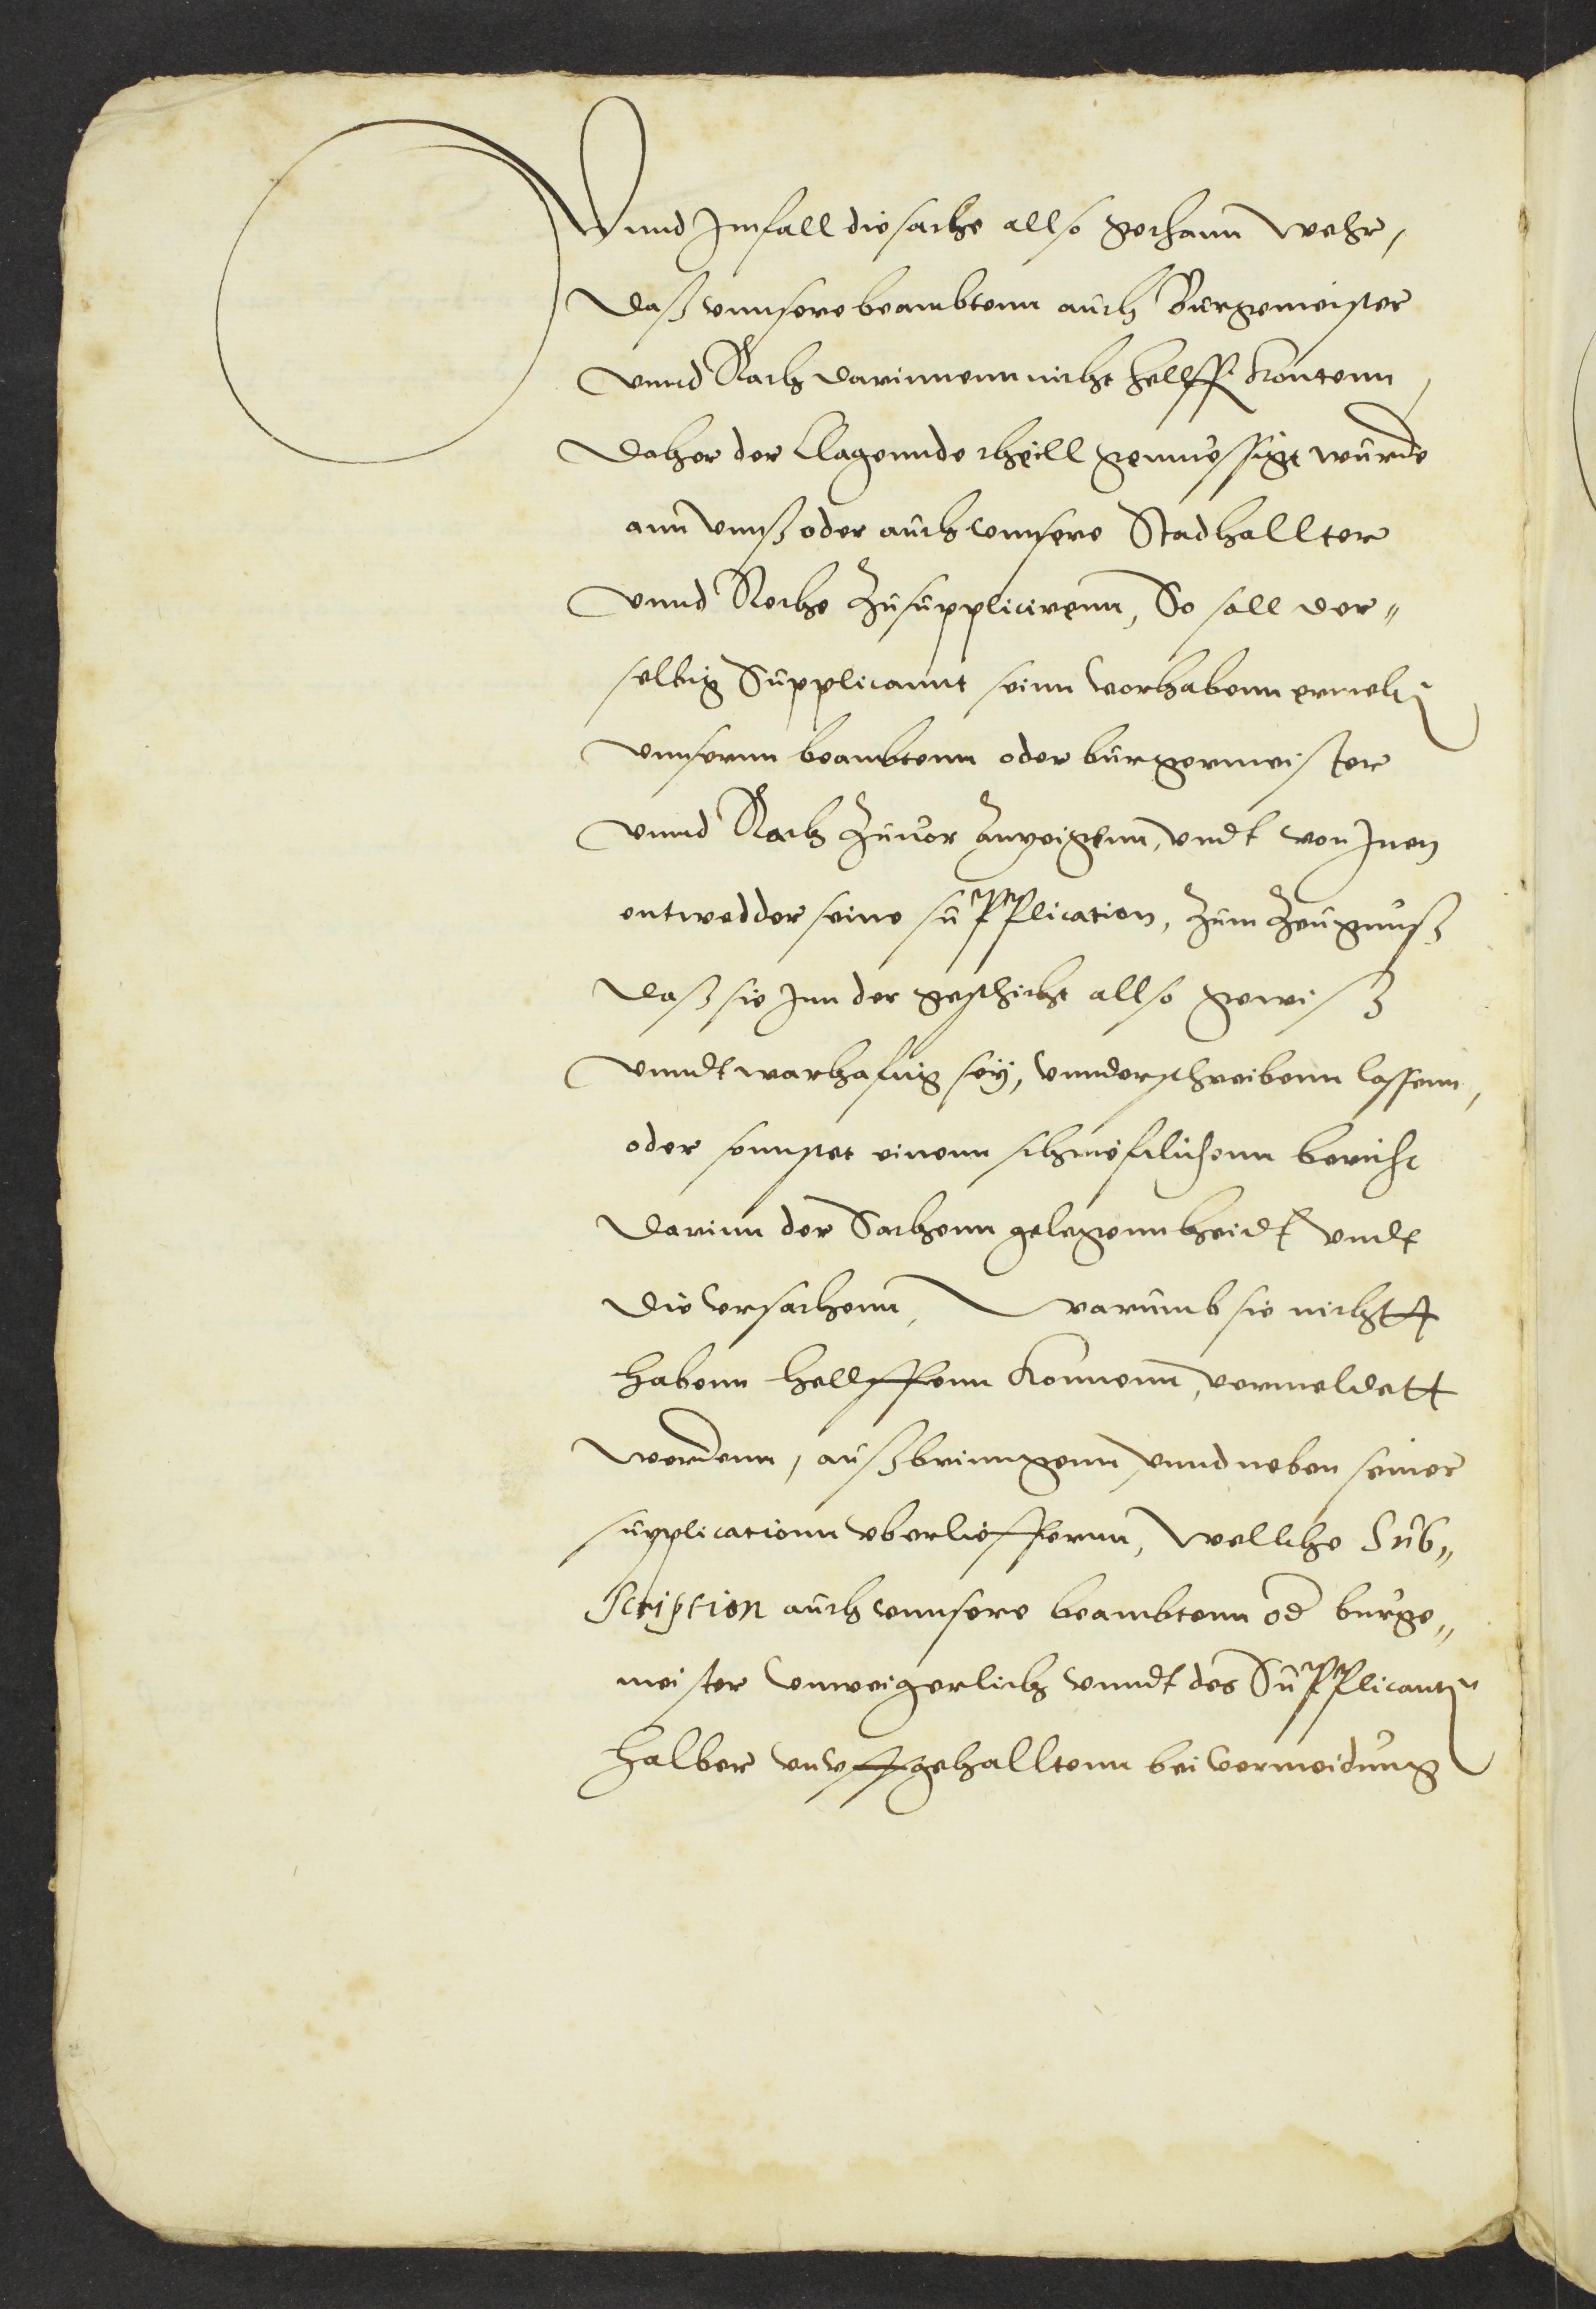 Vnnd Imfall die sache allso gethann wehr,
daß vnnsere beambtenn auch Burgemeister
vnnd Rath darinnenn nicht hellff. Kontenn,
daher der Clagennde theill genn̄ossigt wurde
ann vnnß oder auch vnnsere Stadhallter
vnnd Rethe Zusupplicirenn, So soll der„
selbig Supplicannt seinn vorhabenn ermelt.
vnnsernn beambtenn oder burgermeister
vnnd Rath Zuuor Anzeigenn, vndt von Inen
entwedder seine supplication, Zum Zeugnuß
daß sie Inn der geschicht allso gewiß
vnndt warhafftig seÿ, vnnderschreibenn lassenn,
oder sonnstet einenn schrifftlichenn bericht
darinn der Sachenn gelegennheidt vndt
die vrsachenn, warumb sie nichtt
habenn hellffenn Konnenn, vermeldett
werdenn, außbrinngenn vnnd neben seiner
supplicationn vberliffernn, wellche Sub„
scription auch vnnsere beambtenn od burge„
meister vnweigerlich vnndt des Supplicant.
halber vnvffgehalltenn bei vermeidung